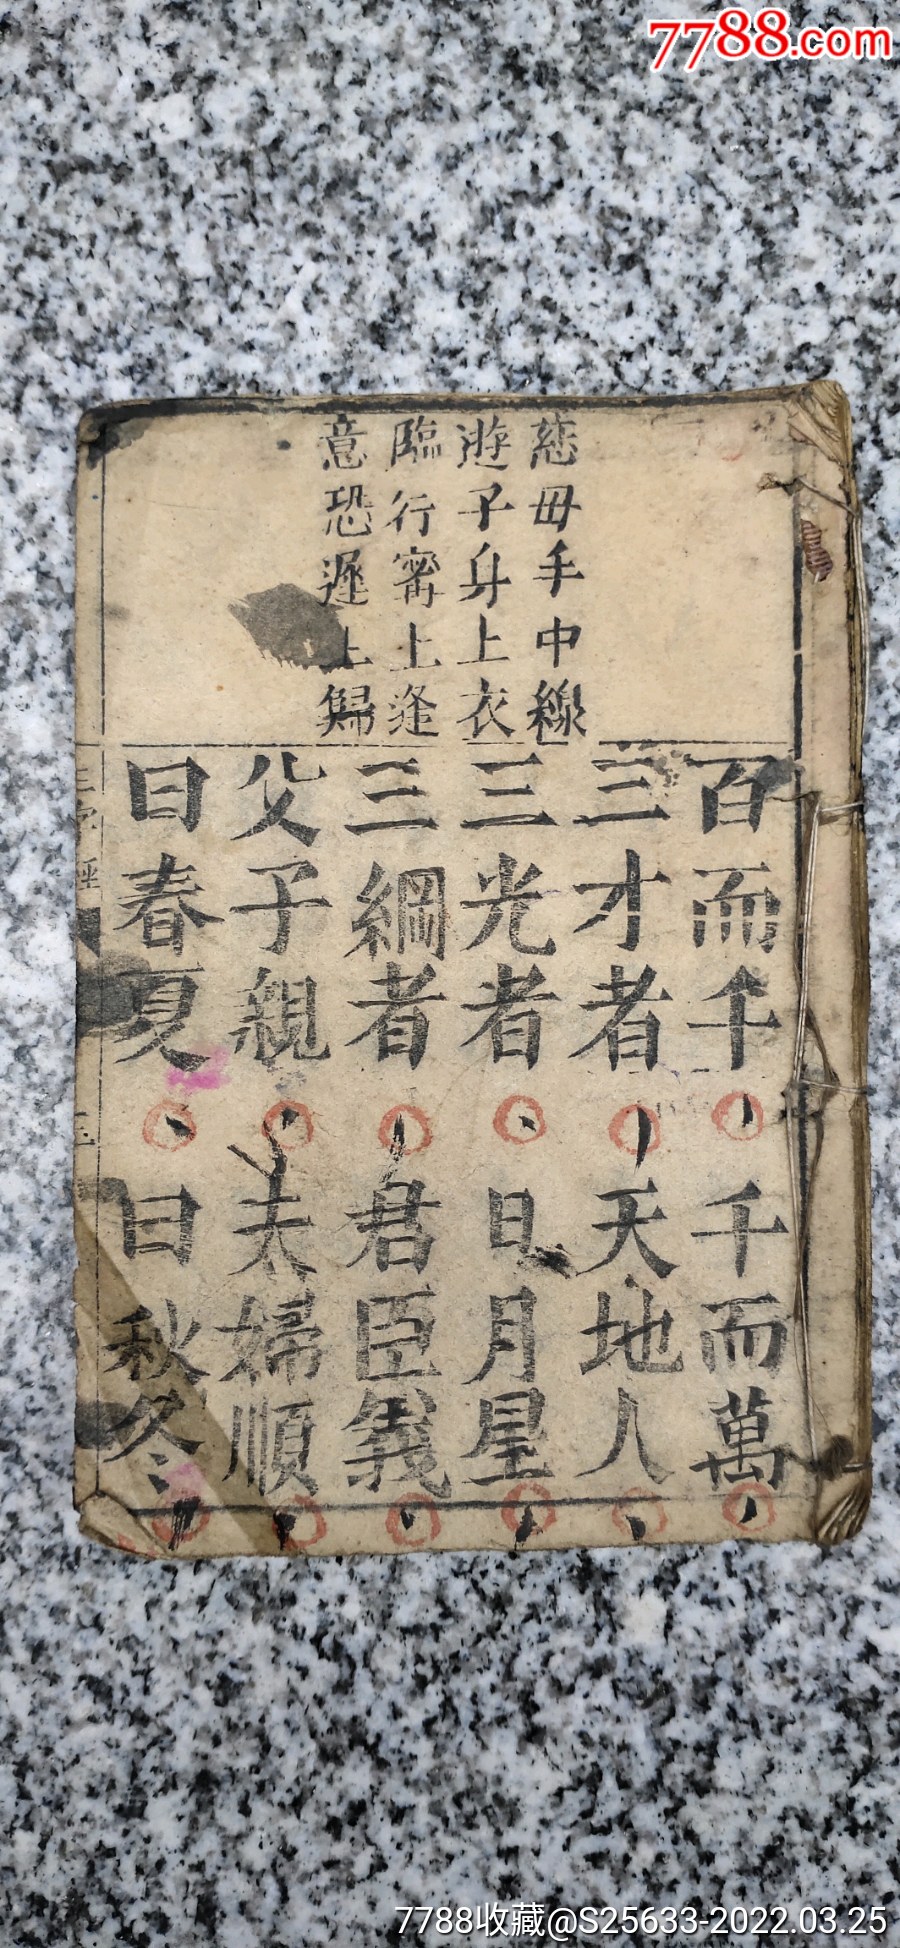 7788.com
慈母手中線
遊子身上衣
臨行密上逢
意恐遲上歸
百而千 千而萬
三才者 天地人
三光者 日月星
三綱者 君臣義
父子親 夫婦順
曰春夏 曰秋冬
三字經
三
7788收藏@S25633-2022.03.25